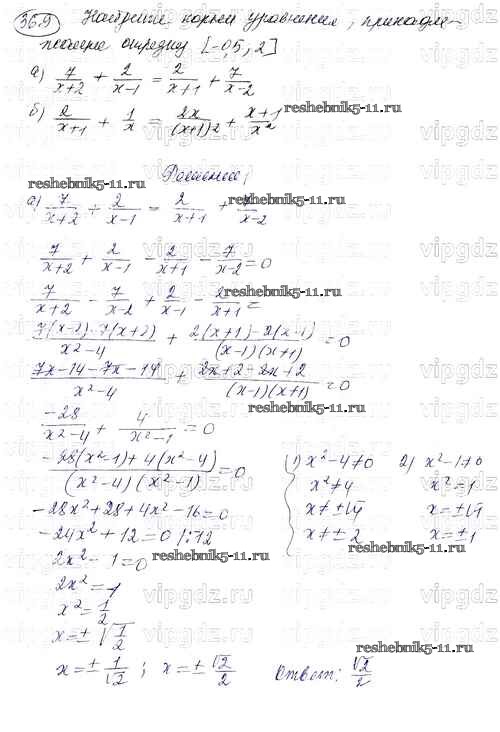 369 Найдите корни уравнения, принадле-
жащие отрезку [-0,5; 2]
а) 7/(x+2) + 2/(x-1) = 2/(x+1) + 7/(x-2)
б) 2/(x+1) + 1/x = 2x/(x+1)2 + (x+1)/x²
reshebnik5-11.ru
Решение:
reshebnik5-11.ru reshebnik5-11.ru
а) 7/(x+2) + 2/(x-1) = 2/(x+1) + 7/(x-2)
7/(x+2) + 2/(x-1) - 2/(x+1) - 7/(x-2) = 0
reshebnik5-11.ru
7/(x+2) - 7/(x-2) + 2/(x-1) - 2/(x+1) =
(7(x-2)-7(x+2))/(x²-4) + (2(x+1)-2(x-1))/((x-1)(x+1)) = 0
(7x-14-7x-14)/(x²-4) + (2x+2-2x+2)/((x-1)(x+1)) = 0
reshebnik5-11.ru
-28/(x²-4) + 4/(x²-1) = 0
(-28(x²-1)+4(x²-4))/((x²-4)(x²-1)) = 0
-28x²+28+4x²-16=0
-24x²+12=0 /:12
2x²-1=0
reshebnik5-11.ru
2x²=1
x²=1/2
x=±√(1/2)
x=±1/√2; x=±√2/2
1) x²-4≠0 2) x²-1≠0
x²≠4 x²=1
x≠±√4 x=±√1
x≠±2 x=±1
reshebnik5-11.ru
reshebnik5-11.ru
Ответ: √2/2
vipgdz.ru